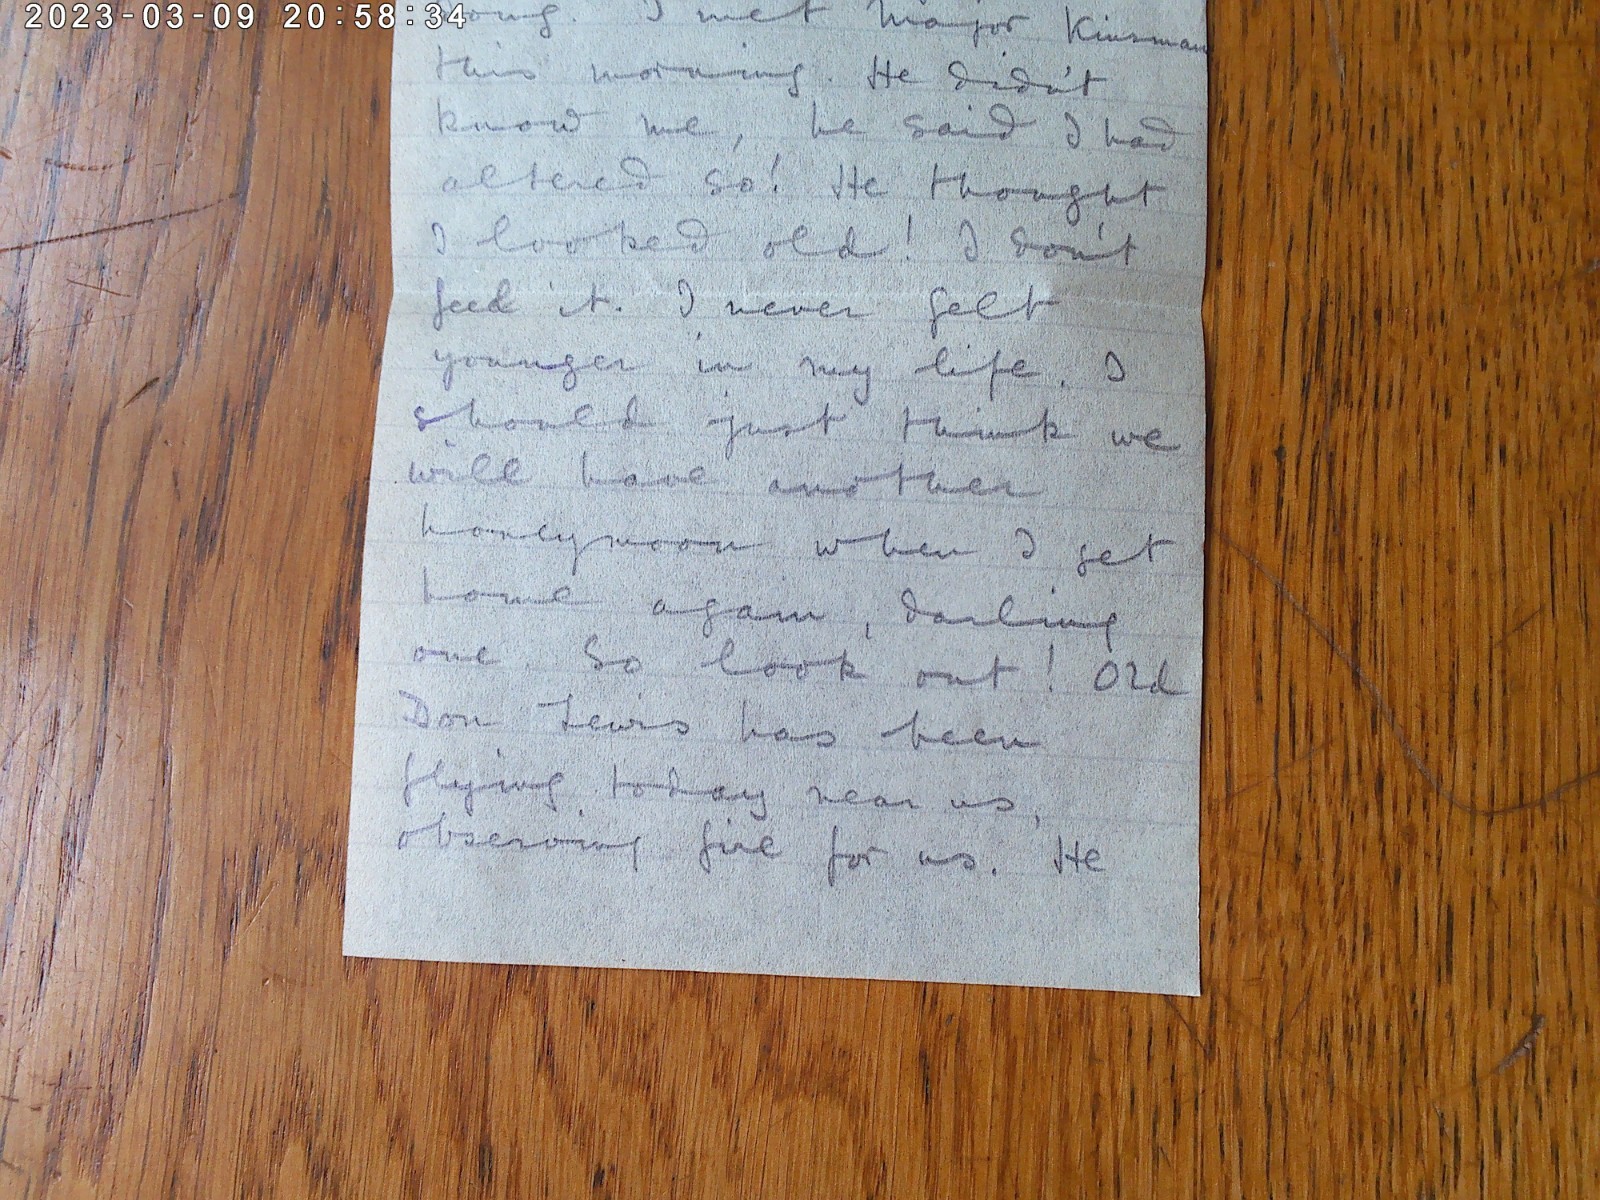 2023-03-09 20:58:34
I met Major Kinsman
this morning. He didn't
know me, he said I had
altered so! He thought
I looked old! I don't
feel it. I never felt
younger in my life. I
should just think we
will have another
honeymoon when I get
home again, darling
one. So look out! Old
Don Lewis has been
flying today near us,
observing fire for us. He